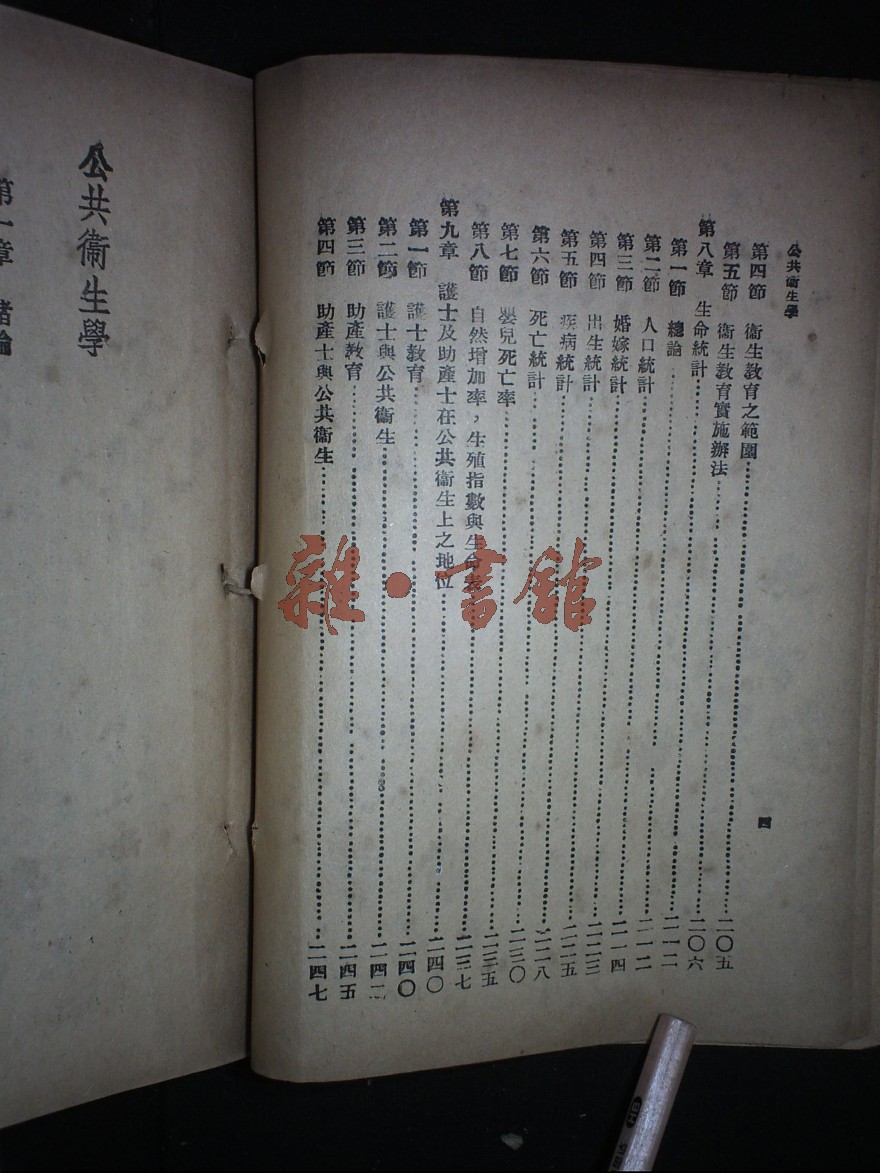 公共衞生學
四
第四節 衞生教育之範圍………二〇五
第五節 衞生教育實施辦法………二〇六
第八章 生命統計………二一二
第一節 總論………二一二
第二節 人口統計………二一四
第三節 婚嫁統計………二二三
第四節 出生統計………二二五
第五節 疾病統計………二二八
第六節 死亡統計………二三〇
第七節 嬰兒死亡率………二三五
第八節 自然增加率，生殖指數與生命表………二三七
第九章 護士及助產士在公共衞生上之地位………二四〇
第一節 護士教育………二四〇
第二節 護士與公共衞生………二四二
第三節 助產教育………二四五
第四節 助產士與公共衞生………二四七
公共衞生學
第一章 緒論
雜·書館
HB